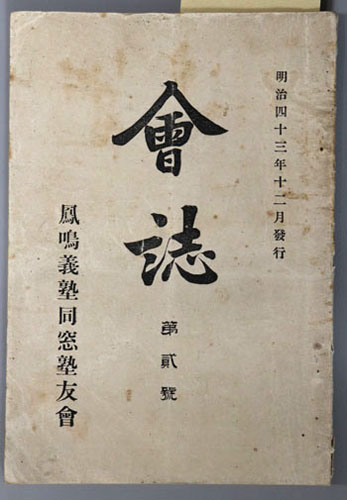 明治四十三年十二月發行
會誌
第貳號
鳳鳴義塾同窓塾友會